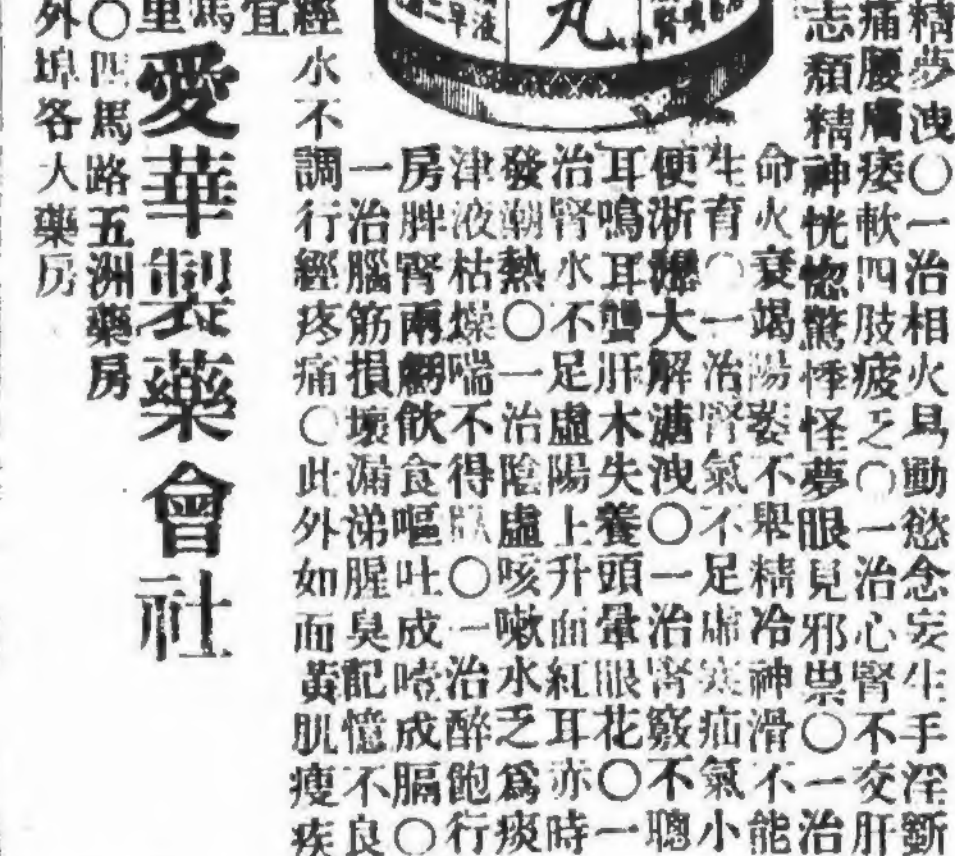 精夢洩〇一治相火易動慾念妄生手淫斲
痛腰膺痿軟四肢疲乏〇一治心腎不交肝
志頹精神恍惚驚悸怪夢眼見邪祟〇一治
命火衰竭陽痿不舉精冷神滑不能
生育〇一治腎氣不足虛寒疝氣小
便淅瀝大解溏洩〇一治腎竅不聰
耳鳴耳聾肝木失養頭暈眼花〇一
治腎水不足虛陽上升面紅耳赤時
發潮熱〇一治陰虛咳嗽水乏為痰
津液枯燥喘不得臥〇一治醉飽行
房脾腎兩虧飲食嘔吐成噎成膈〇
一治腦筋損壞漏涕腥臭記憶不良
丸
液
經水不調行經疼痛〇此外如面黃肌瘦疾
宜
馬
里
愛華製藥會社
〇四馬路五洲藥房
外埠各大藥房